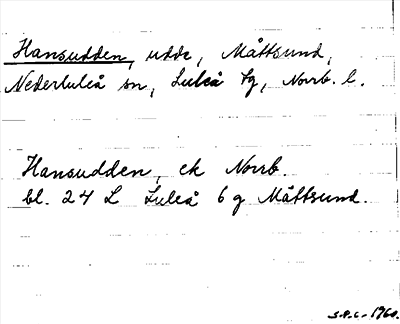 Hansudden, udde, Måttsund,
Nederluleå sn, Luleå tg, Norrb. l.
Hansudden, ek Norrb.
bl. 24 L Luleå 6 g Måttsund.
1960.